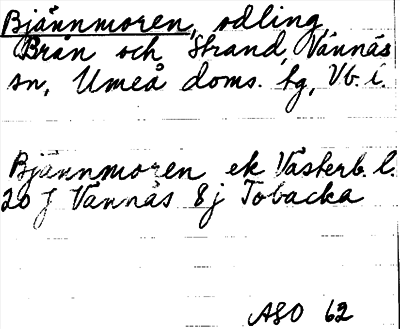 Bjännmoren, odling
Brån och Strand, Vännäs
sn, Umeå doms. tg, Vb. l.
Bjännmoren ek Västerb. l.
20 J Vännäs 8j Tobacka
ASO 62